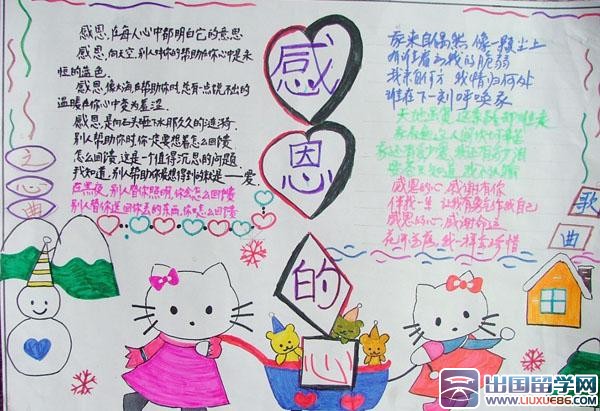 感恩的心
感恩,在每人心中都明白它的意思
感恩,向天空,别人对你的帮助在你心中是永
恒的蓝色.
感恩,像大海,在帮助你时,总有一点说不出的
温暖在你心中变为羞涩.
感恩,是向石头啦下水那久久的涟漪.
别人帮助你时,你一定要想着怎么回馈
怎么回馈,这是个值得沉思的问题.
我知道,别人帮助你最想得到的就是——爱.
在黑夜,别人替你照明,你会怎么回馈
别人替你送回丢的东西,你怎么回馈
之
心
曲
我来自偶然 像一颗尘土
有谁看出我的脆弱
我来自何方 我情归何处
谁在下一刻呼唤我
天地虽宽 这条路却难走
我看遍这人间坎坷辛苦
我还有多少爱 我还有多少泪
要苍天知道 我不认输
感恩的心 感谢有你
伴我一生 让我有勇气作我自己
感恩的心 感谢命运
花开花落 我一样会珍惜
歌
曲
出国留学网
WWW.LIUXUE86.COM